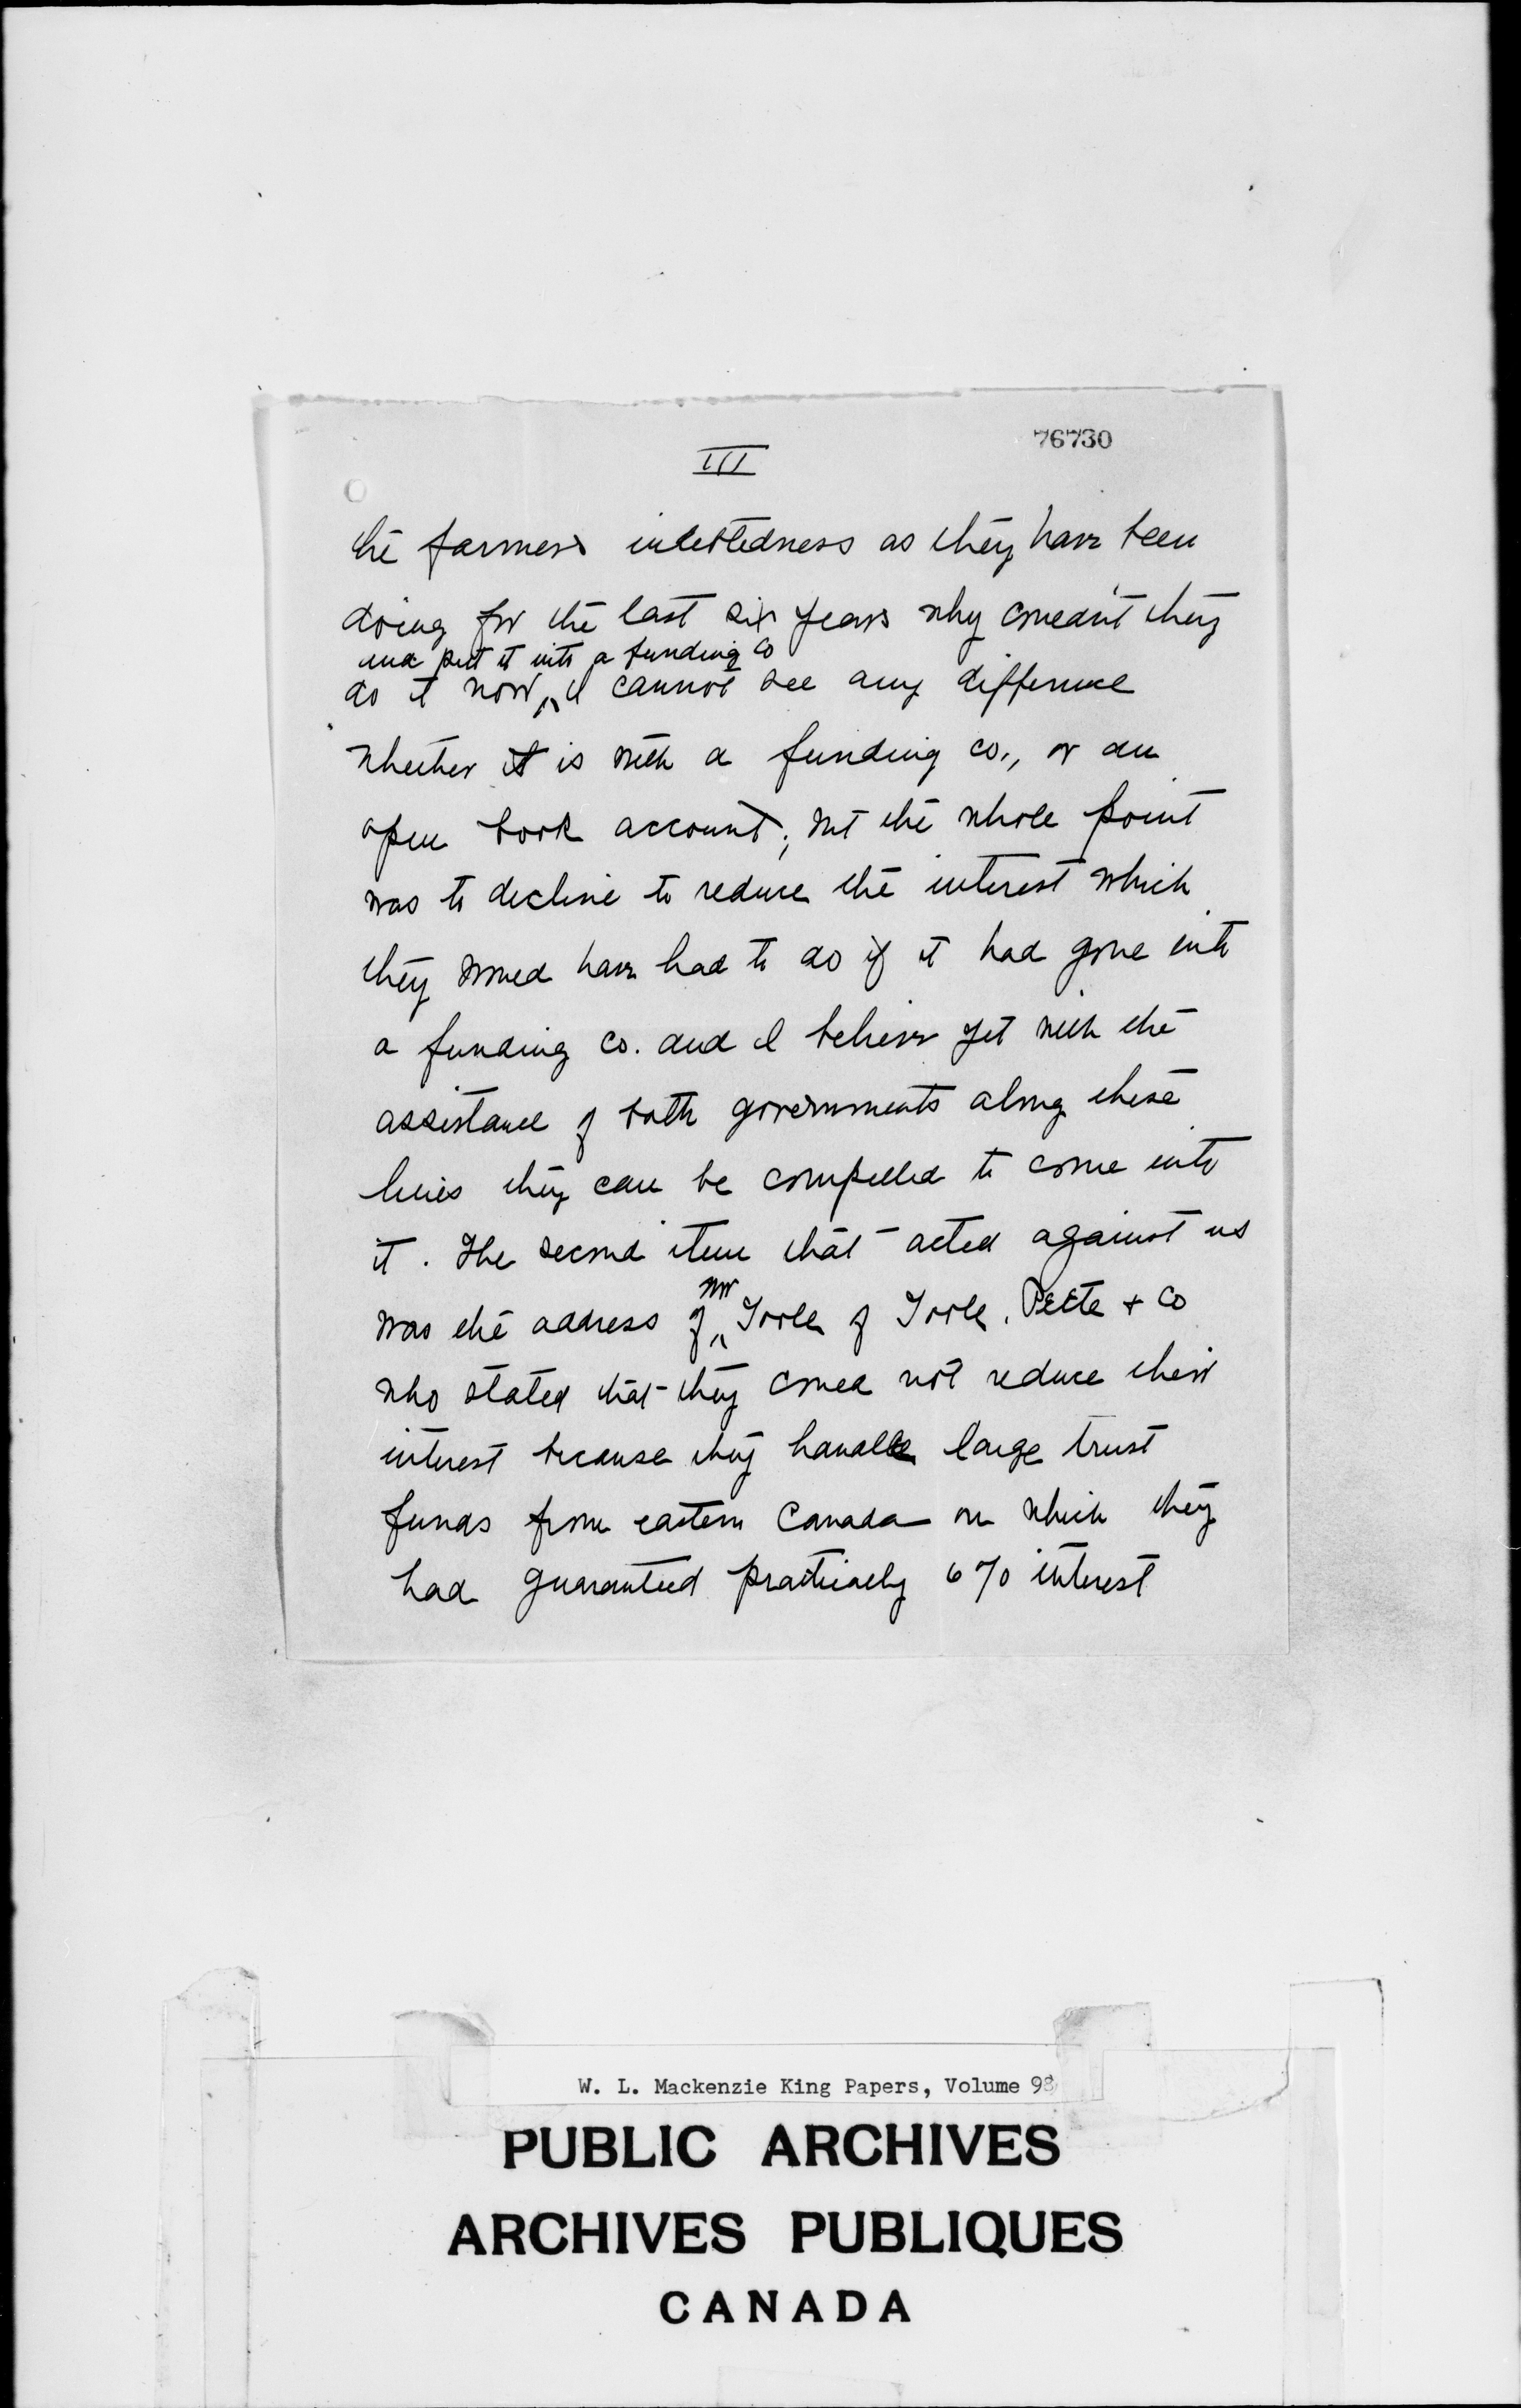 76730
III
the farmers indebtedness as they have been
doing for the last six years why couldn't they
and put it into a funding co
do it now, I cannot see any difference
whether it is with a funding co., or an
open book account; but the whole point
was to decline to reduce the interest which
they would have had to do if it had gone into
a funding co. and I believe yet with the
assistance of both governments along these
lines they can be compelled to come into
it. The second item that acted against us
Mr
was the address of Toole of Toole, Peete + Co
who stated that they could not reduce their
interest because they handle large trust
funds from eastern Canada on which they
had guaranteed practically 6% interest
W. L. Mackenzie King Papers, Volume 98
PUBLIC ARCHIVES
ARCHIVES PUBLIQUES
CANADA